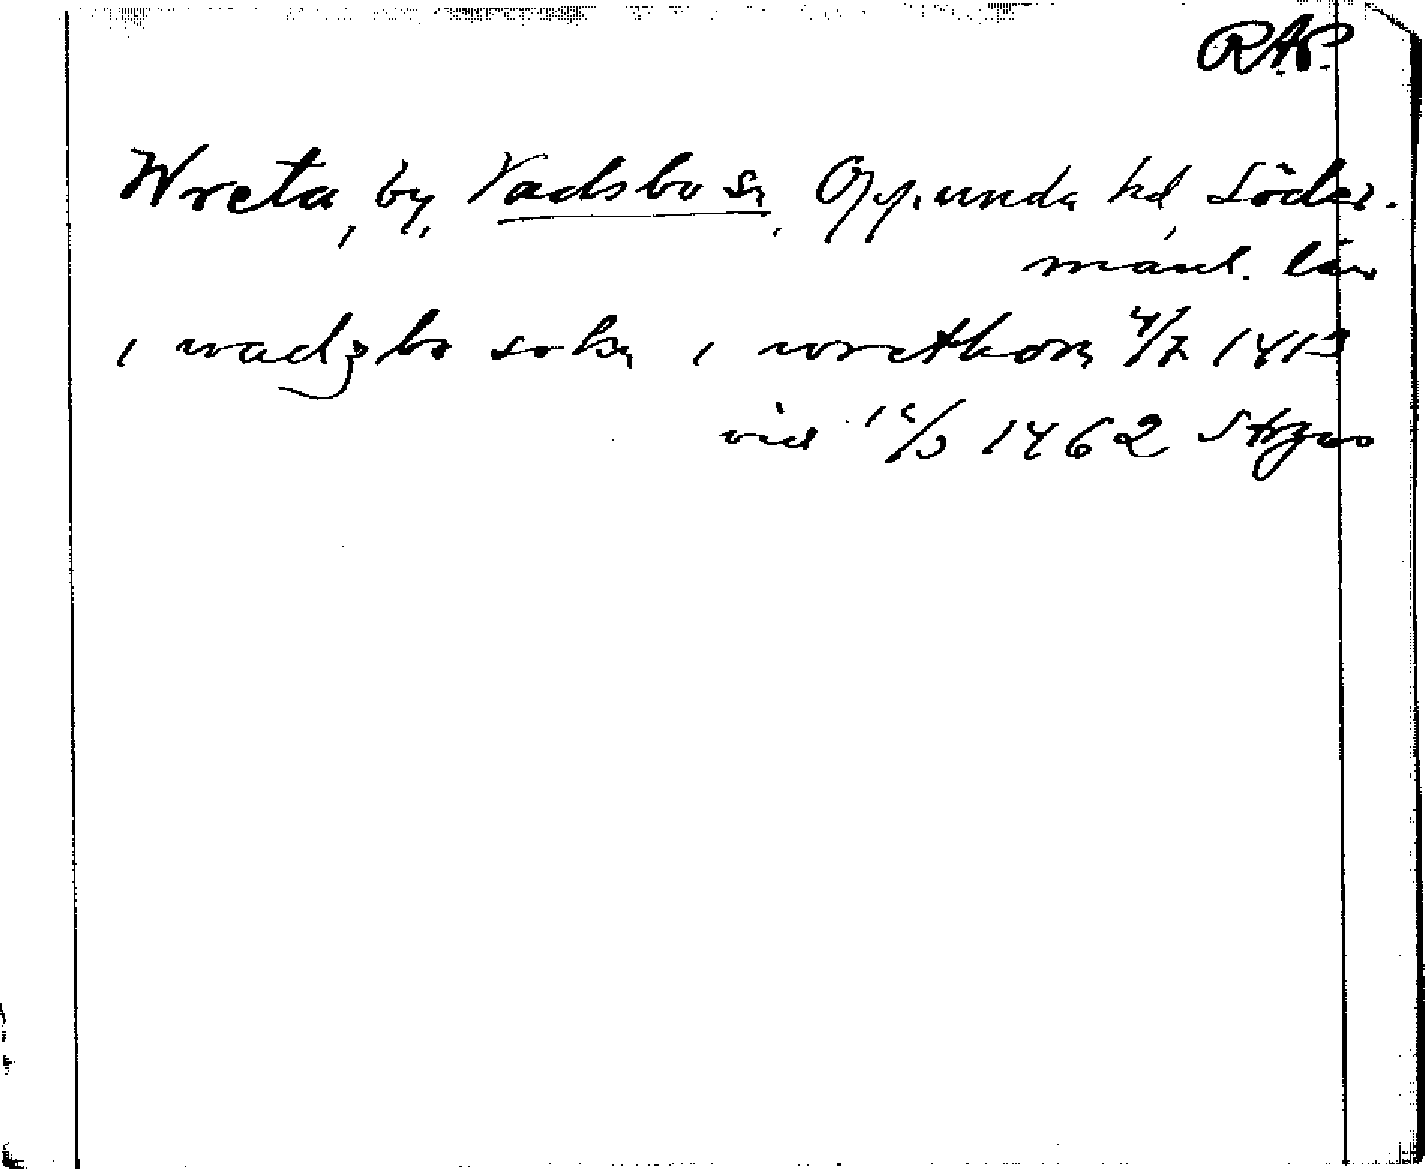 RAP.
Wreta, by, Vadsbo sn, Oppunda hd, Söder-
manl. län
i wadzbo sokn i wrethom 4/7 1413
vid 1462